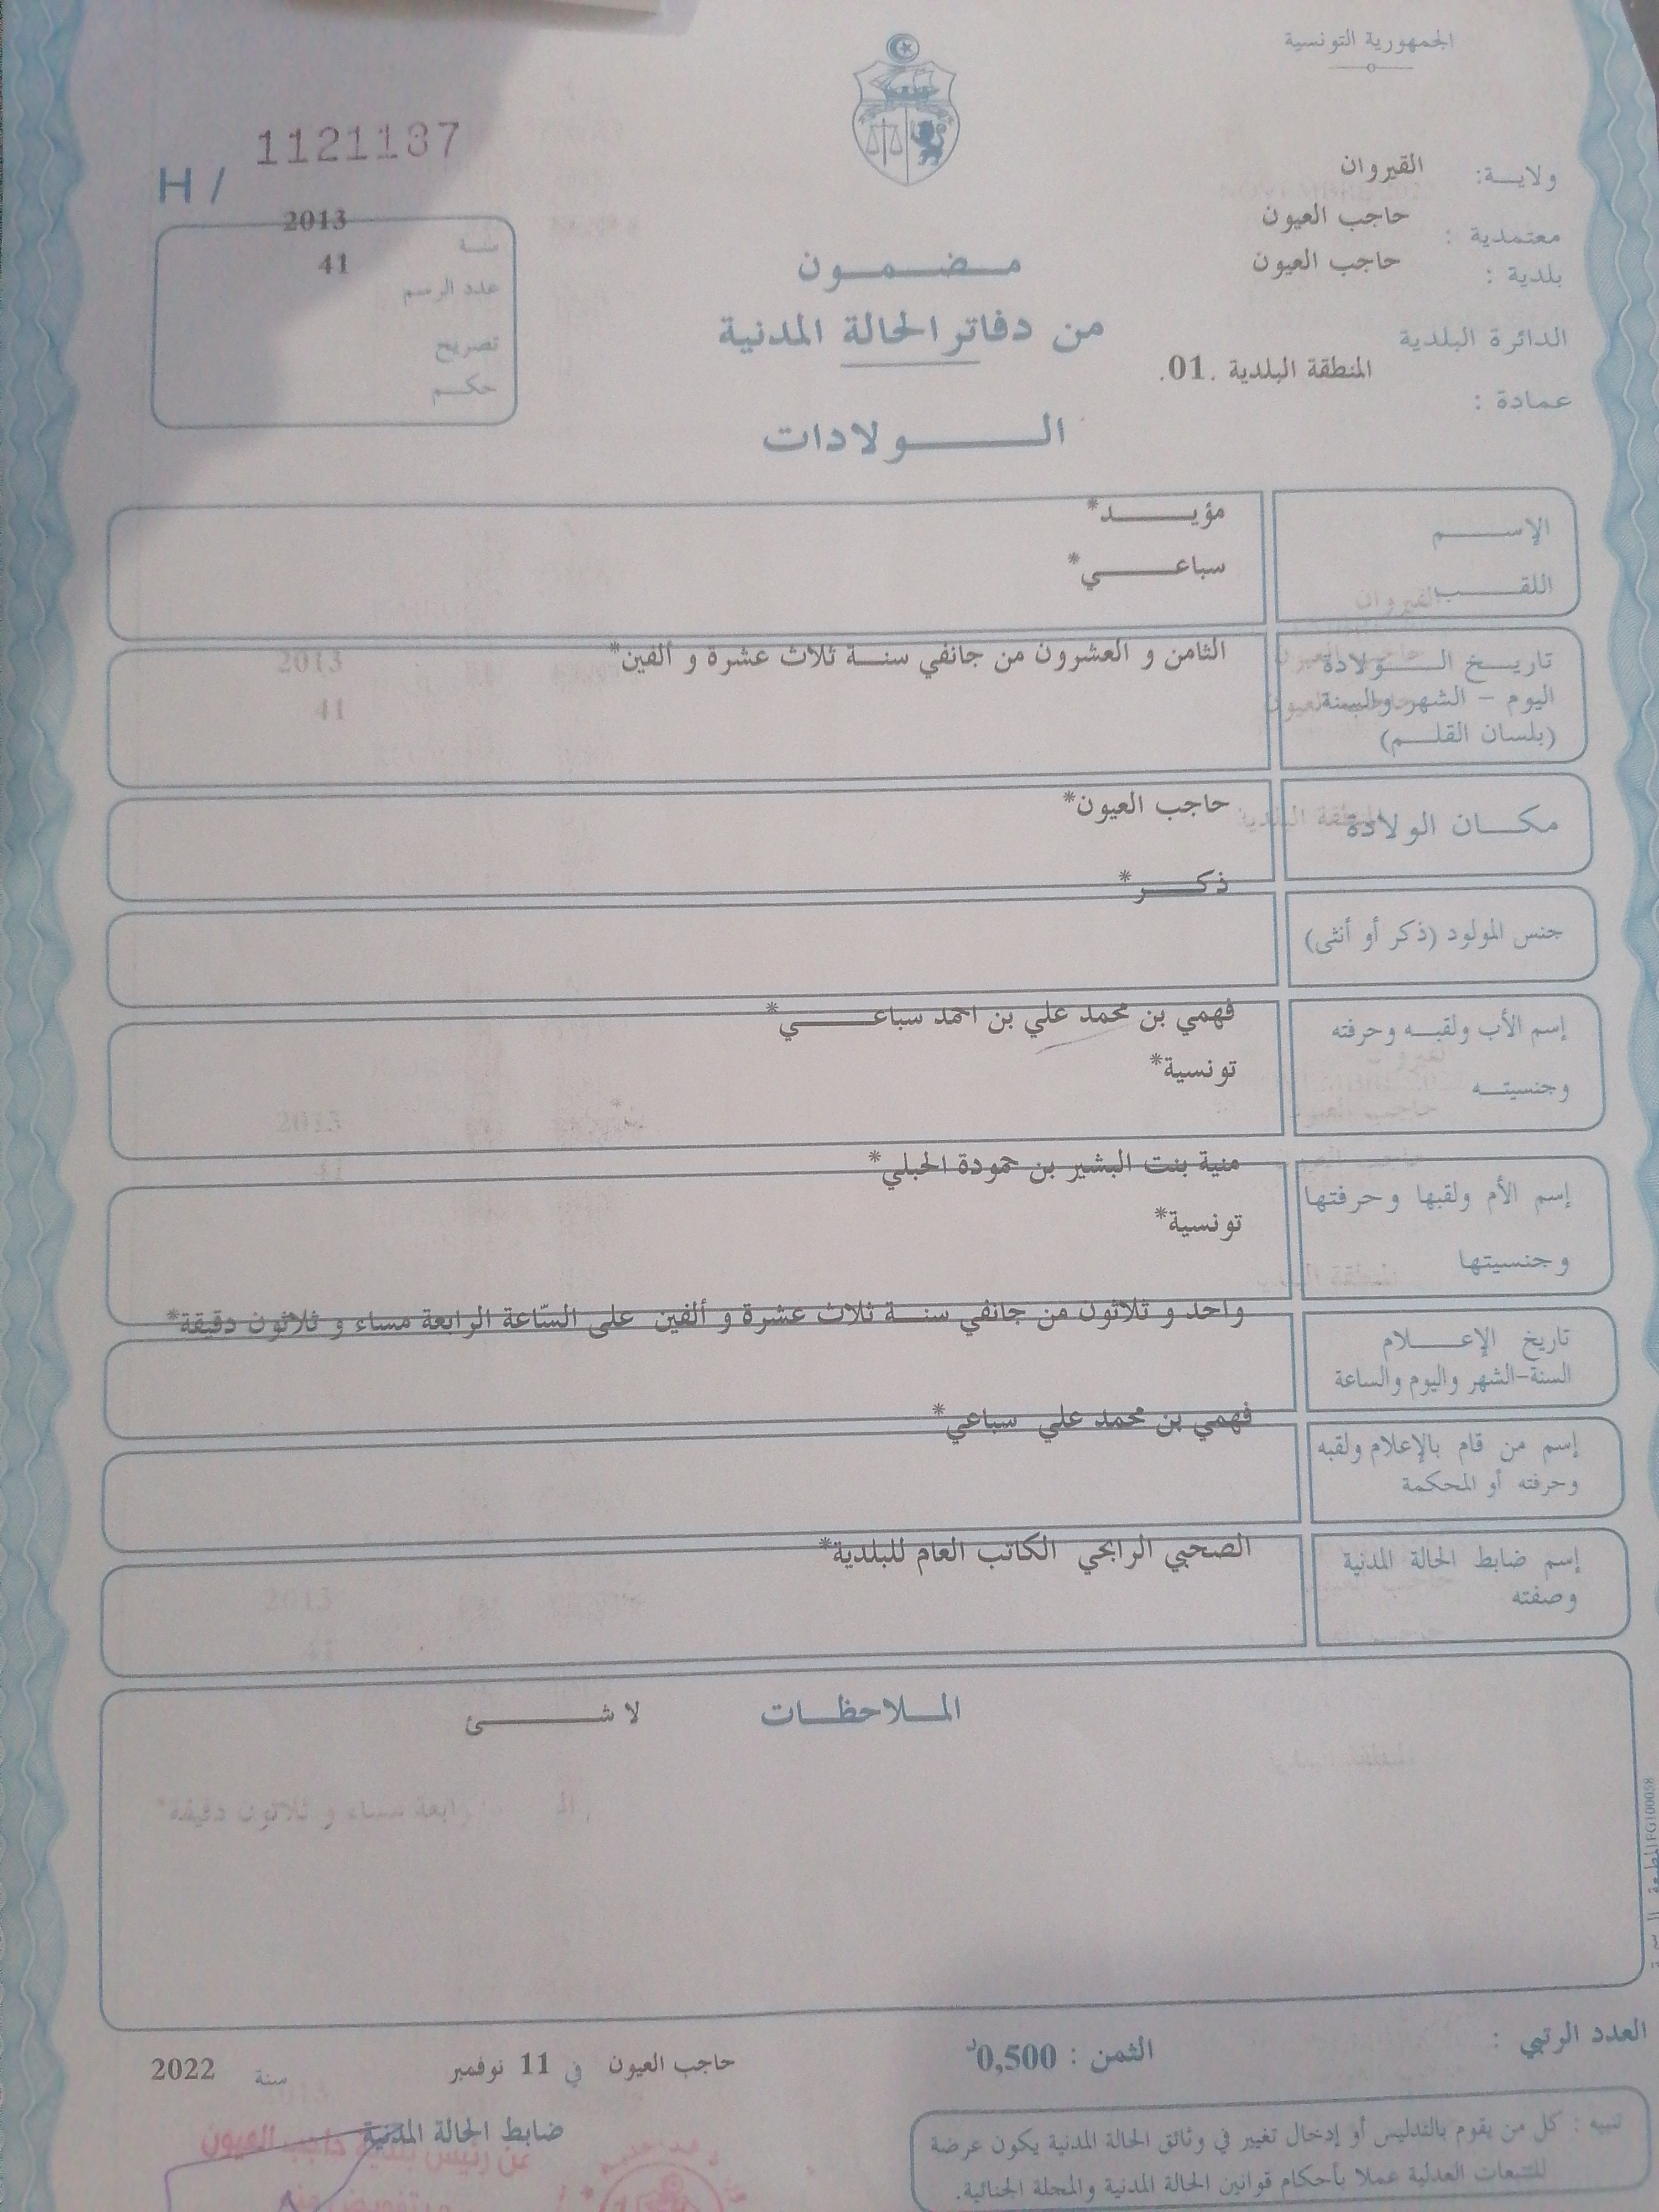 الجمهورية التونسية
H / 1121137
ولايـــة: القيروان
معتمدية : حاجب العيون
بلدية : حاجب العيون
الدائرة البلدية
المنطقة البلدية .01.
عمادة :
سنـة 2013
عدد الرسم 41
تصريح
حكـم
مـــضـــمـــون
من دفاتر الحالة المدنية
الـــــولادات
الإســــــم مؤيـــــد*
اللقــــــب سباعــــــي*
تاريـــخ الـــــولادة الثامن و العشرون من جانفي سنـــة ثلاث عشرة و ألفين*
اليوم – الشهر والسنة
(بلسان القلـــم)
مكـــان الولادة حاجب العيون*
جنس المولود (ذكر أو أنثى) ذكـــر*
إسم الأب ولقبـــه وحرفته فهمي بن محمد علي بن احمد سباعــــــي*
وجنسيتـــه تونسية*
إسم الأم ولقبها وحرفتها منية بنت البشير بن حمودة الحبلي*
وجنسيتها تونسية*
تاريخ الإعــــــلام واحد و ثلاثون من جانفي سنـــة ثلاث عشرة و ألفين على السّاعة الرابعة مساء و ثلاثون دقيقة*
السنة-الشهر واليوم والساعة
إسم من قام بالإعلام ولقبه فهمي بن محمد علي سباعي*
وحرفته أو المحكمة
إسم ضابط الحالة المدنية الصحبي الرابحي الكاتب العام للبلدية*
وصفته
المـــلاحظـــات لا شـــــــئ
العدد الرتبي :
الثمن : 0,500د
حاجب العيون في 11 نوفمبر سنة 2022
ضابط الحالة المدنية
عن رئيس بلدية حاجب العيون
تنبيه : كل من يقوم بالتدليس أو إدخال تغيير في وثائق الحالة المدنية يكون عرضة
للتتبعات العدلية عملا بأحكام قوانين الحالة المدنية والمجلة الجنائية.